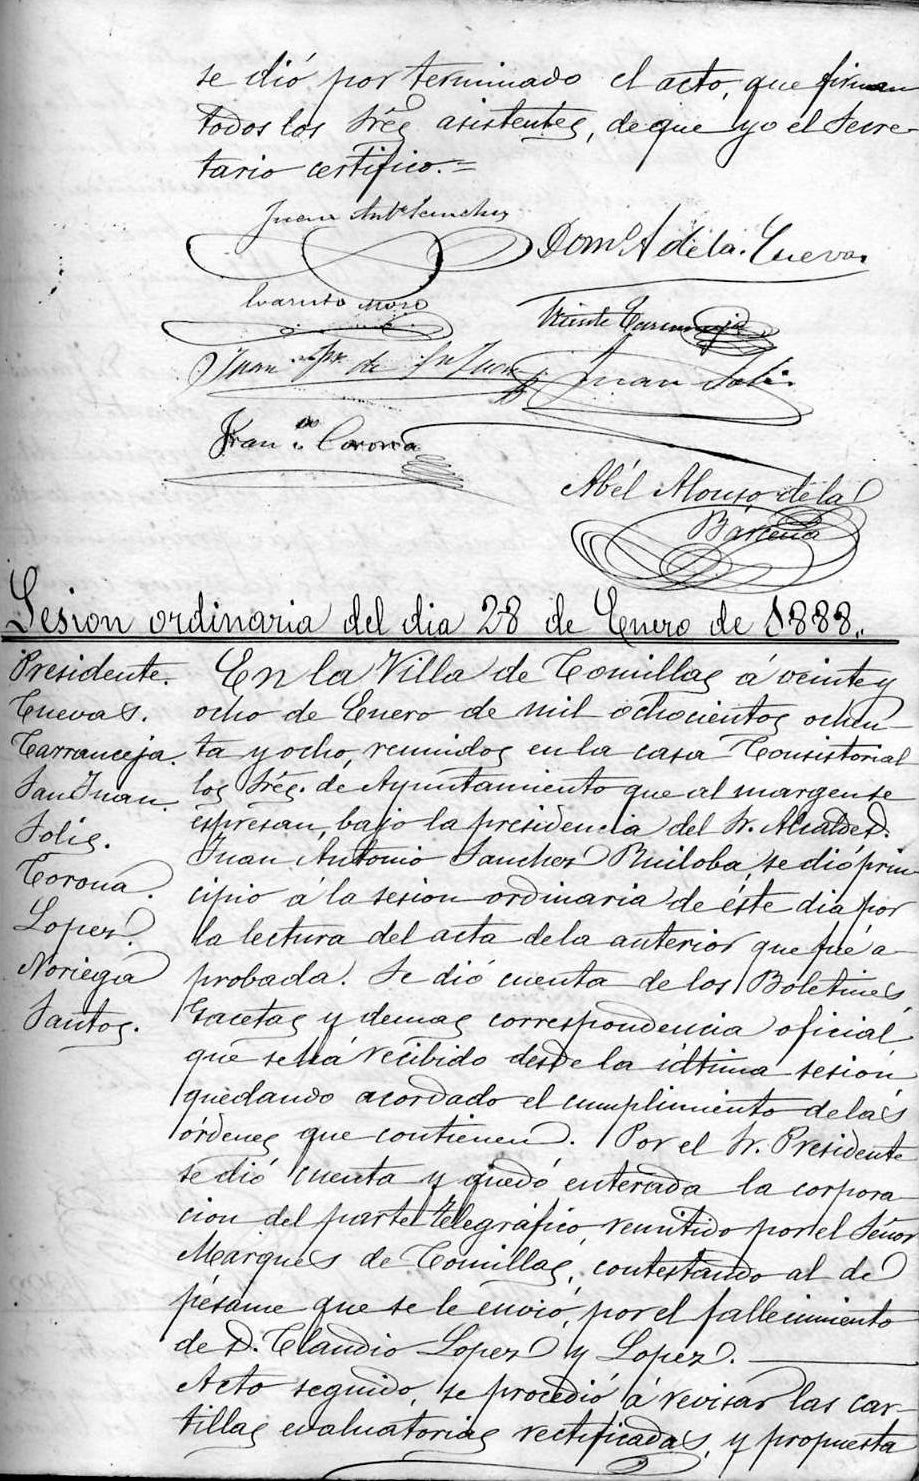 se dió por terminado el acto, que firman
todos los Sres asistentes, de que yo el Secre-
tario certifico.=
Juan Ante Sanchez
Domo A de la Cueva
Evaristo
Vicente Tarranceja
Juan de Sn Juan
Juan Solis
Franco Corona
Abél Alonso de la
Bárcena
Sesion ordinaria del dia 28 de Enero de 1888.
Presidente.
Cuevas.
Tarranceja.
San Juan.
Solis.
Corona.
Lopez.
Noriega
Santos.
En la Villa de Comillas á veinte y
ocho de Enero de mil ochocientos ochen-
ta y ocho, reunidos en la casa Consistorial
los Sres. de Ayuntamiento que al margen se
espresan, bajo la presidencia del Sr. Alcalde D.
Juan Antonio Sanchez Ruiloba, se dió prin-
cipio á la sesion ordinaria de éste dia por
la lectura del acta de la anterior que fué a-
probada. Se dió cuenta de los Boletines
Gacetas y demas correspondencia oficial
que se há recibido desde la última sesión
quedando acordado el cumplimiento de las
órdenes que contienen. Por el Sr. Presidente
se dió cuenta y quedó enterada la corpora
cion del parte telegráfico, remitido por el Señor
Marqués de Comillas, contestando al de
pésame que se le envió, por el fallecimiento
de D. Claudio Lopez y Lopez.
Acto seguido, se procedió á revisar las car-
tillas evaluatorias rectificadas, y propuesta